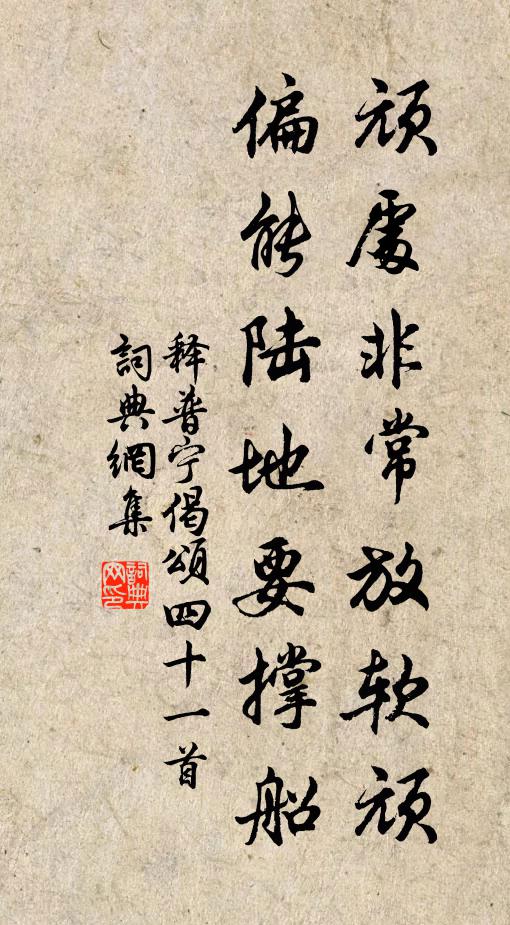 顽處非常放软顽
偏能陆地要撑船
释普宁偈颂四十一首
詞典網集
詞典网印